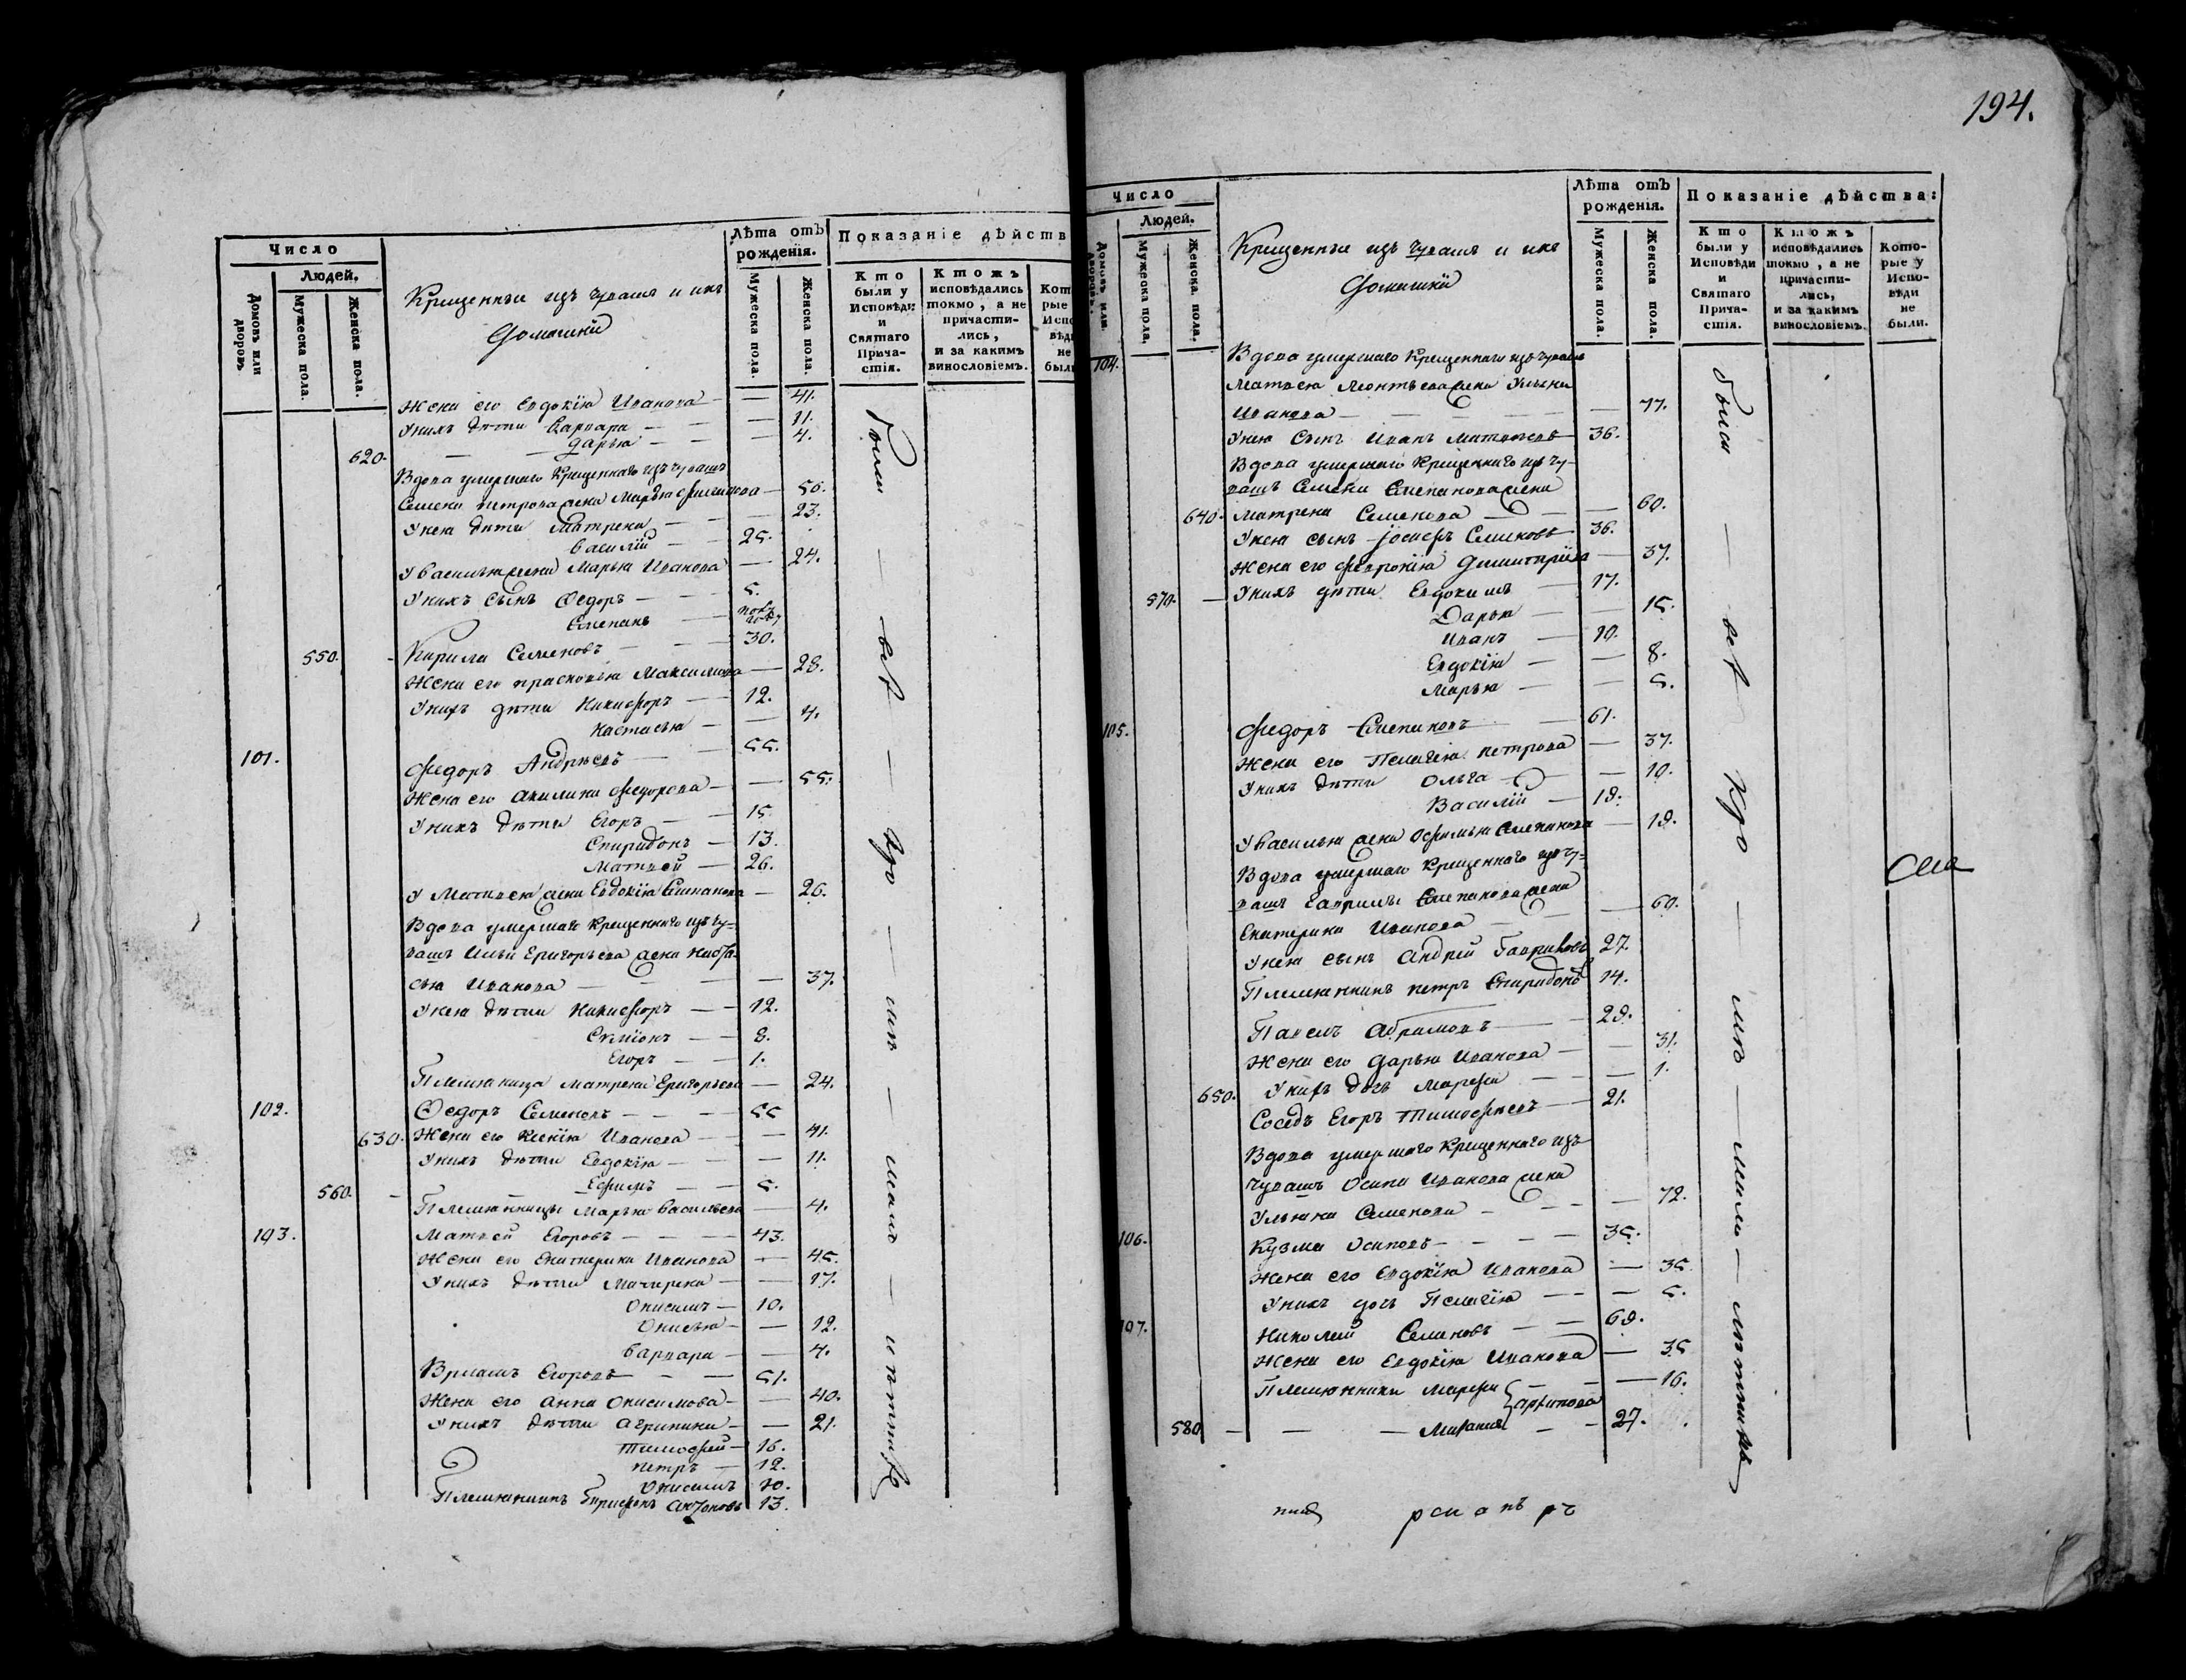 Число
Людей.
Домовъ или дворовъ
Мужеска пола.
Женска пола.
Крещенныи изъ чувашъ и ихъ
домашніи
Лѣта отъ рожденія.
Мужеска пола.
Женска пола.
Показаніе дѣйств
Кто были у Исповѣди и Святаго Причастія.
Ктожъ исповѣдались токмо, а не причастились, и за какимъ винословіемъ.
Жена его Евдокія Иванова — 41.
У нихъ дѣти Варвара — 11.
620. Дарья — 4.
Вдова умершаго крещеннаго изъ чувашъ
Семена Петрова жена Марѳа Филипова — 50.
У нея дѣти Матрена — 23.
Василій — 25.
У Василья жена Марья Иванова — 24.
У нихъ сынъ Ѳедоръ — 5.
Степанъ —
550. Кирила Семеновъ — 30.
Жена его Прасковья Максимова — 28.
У нихъ дѣти Никифоръ — 12.
Настасья — 4.
101. Федоръ Андреевъ — 55.
Жена его Акилина Федорова — 55.
У нихъ дѣти Егоръ — 15.
Спиридонъ — 13.
Матвей — 26.
У Матвея жена Евдокія Степанова — 26.
Вдова умершаго крещеннаго изъ чу-
вашъ Ильи Григорьева жена
Иванова — 37.
У нея дѣти Никифоръ — 12.
Семіонъ — 8.
Егоръ — 1.
Племяница Матрена Григорьева — 24.
102. Ѳедоръ Семеновъ — 55
630. Жена его Ксенія Иванова — 41.
У нихъ дѣти Евдокія — 11.
560. Ефимъ — 5.
Племянница Марья Васильева — 4.
103. Матвей Егоровъ — 43.
Жена его Екатерина Иванова — 45.
У нихъ дѣти Матирена — 17.
Онисимъ — 10.
Онисья — 12.
Варвара — 4.
Егоровъ — 51.
Жена его Анна Онисимова — 40.
У нихъ дѣти Агрипина — 21.
Тимофей — 16.
Петръ — 12.
Онисимъ 10.
Племянникъ 13.
были — всѣ —
194.
Число
Людей.
Домовъ или дворовъ.
Мужеска пола.
Женска пола.
Крещенныи изъ чувашъ и ихъ
домашніи
Лѣта отъ рожденія.
Мужеска пола.
Женска пола.
Показаніе дѣйства:
Кто были у Исповѣди и Святаго Причастія.
Ктожъ исповѣдались токмо, а не причастились, и за какимъ винословіемъ.
Которые у Исповѣди не были.
104. Вдова умершаго крещеннаго изъ чувашъ
Матвея Леонтьева жена Ульяна
Иванова — 77.
У нея сынъ Иванъ Матвеевъ 36.
Вдова умершаго крещеннаго изъ чу-
вашъ Семена Степанова жена
640. Матрена Семенова — 60.
У нея сынъ Іосифъ Семеновъ 36.
Жена его Феврокія Димитріева — 37.
570. У нихъ дѣти Евдокимъ — 17.
Дарья — 15.
Иванъ — 10.
Евдокія — 8.
Марья — 5.
105. Федоръ Степановъ — 61.
Жена его Пелагія Петрова — 37.
У нихъ дѣти Ольга — 10.
Василій — 18.
У Василья жена Офимья Степанова — 18.
Вдова умершаго крещеннаго изъ чу-
вашъ Гаврилы Степанова жена
Екатерина Иванова — 60.
У нея сынъ Андрей Гавриловъ 27.
Племянникъ Петръ Спиридоновъ 14.
Павелъ Абрамовъ — 28.
Жена его Дарья Иванова — 31.
650. У нихъ дочь Марфа — 1.
Соседъ Егоръ Тимофеевъ — 21.
Вдова умершаго крещеннаго изъ
чувашъ Осипа Иванова жена
Ульяна Семенова — 72.
106. Кузма Осиповъ — 35.
Жена его Евдокія Иванова — 35.
У нихъ дочь Пелагія — 5.
107. Николай Семеновъ — 68.
Жена его Евдокія Иванова — 35
Племянники Марфа — 16.
Архипова
580 — 27.
были — всѣ —